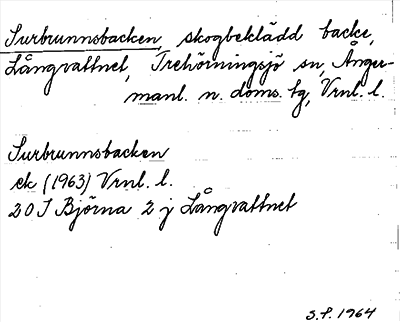 Surbrunnsbacken, skogbeklädd backe,
Långvattnet, Trehörningsjö sn, Ånger-
manl. n. doms. tg, Vrnl. l.
Surbrunnsbacken
ek (1963) Vrnl. l.
20 I Björna 2 j Långvattnet
S.F. 1964